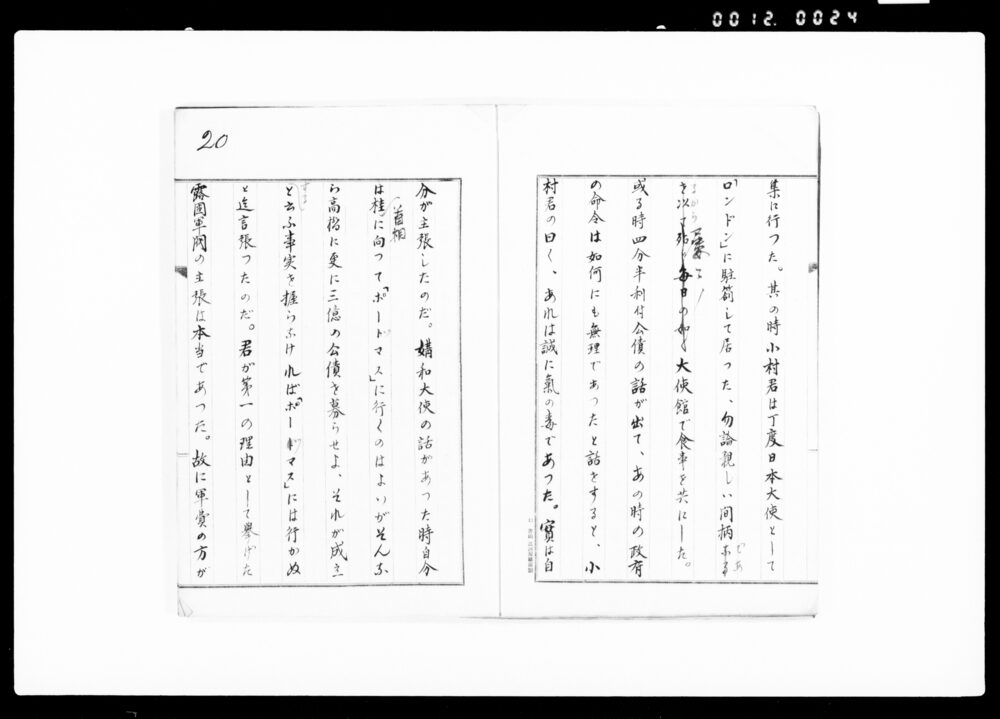 0012. 0024
集に行つた。其の時小村君は丁度日本大使として
「ロンドン」に駐箚して居つた、勿論親しい間柄
であ
るから
を以て殆ど毎日の如く大使館で食事を共にした。
或る時四分半利付公債の話が出て、あの時の政府
の命令は如何にも無理であつたと話をすると、小
村君の曰く、あれは誠に氣の毒であつた。實は自
20
分が主張したのだ。媾和大使の話があつた時自分
は桂(首相)に向つて「ポードマス」に行くのはよいがそんな
ら高橋に更に三億の公債を募らせよ、それが成立
する
と云ふ事実を握らなければ「ポードマス」には行かぬ
と迄言張つたのだ。君が第一の理由として擧げた
露國軍閥の主張は本当であつた。故に軍費の方が